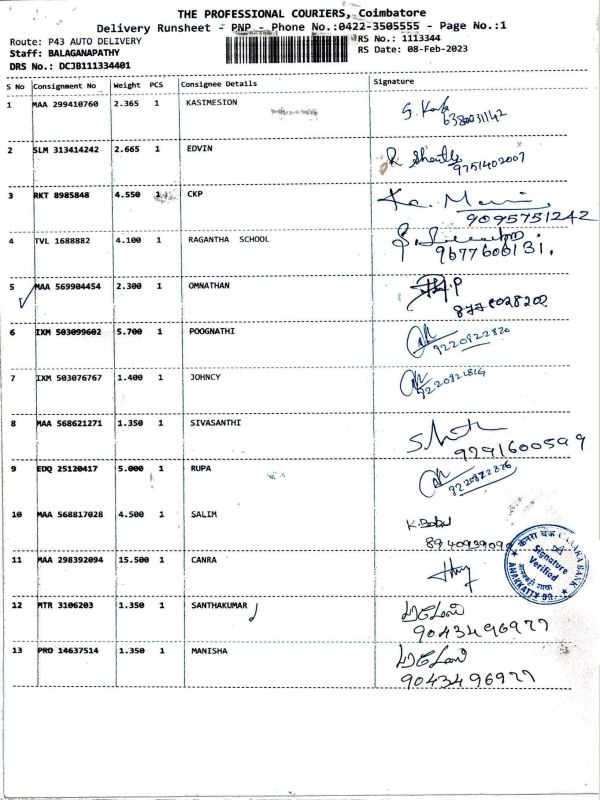 THE PROFESSIONAL COURIERS, Coimbatore
Delivery Runsheet - PNP - Phone No.:0422-3505555 - Page No.:1
Route: P43 AUTO DELIVERY
RS No.: 1113344
Staff: BALAGANAPATHY
RS Date: 08-Feb-2023
DRS No.: DCJB111334401
S No Consignment No Weight PCS Consignee Details Signature
1 MAA 299410760 2.365 1 KASIMESION
2 SLM 313414242 2.665 1 EDVIN
9751402007
3 RKT 8985848 4.550 1 CKP
9095751242
4 TVL 1688882 4.100 1 RAGANTHA SCHOOL
9677606131.
5 MAA 569904454 2.300 1 OMNATHAN
6 IXM 503099602 5.700 1 POOGNATHI
9220822820
7 IXM 503076767 1.400 1 JOHNCY
8 MAA 568621271 1.350 1 SIVASANTHI
9 EDQ 25120417 5.000 1 RUPA
10 MAA 568817028 4.500 1 SALIM
11 MAA 298392094 15.500 1 CANRA
केनरा बैंक CANARA BANK
Signature
Verified
ANAKKATTY BR.
12 MTR 3106203 1.350 1 SANTHAKUMAR
9043496977
13 PRO 14637514 1.350 1 MANISHA
9043496977